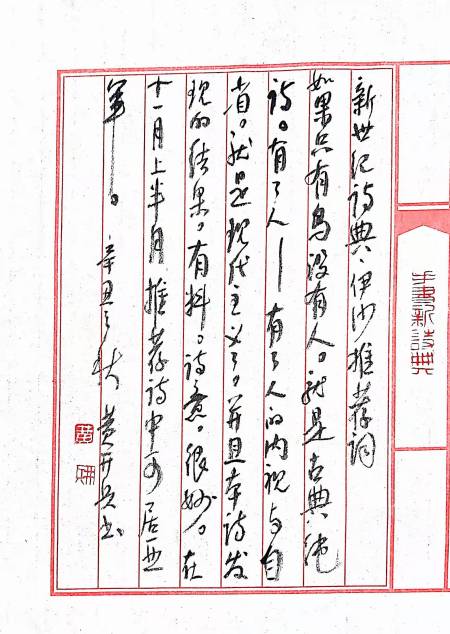 手書新詩典
新世纪诗典、伊沙推荐词
如果只有鸟没有人。就是古典绝
诗。有了人——有了人的内视与自
省。就是现代主义了。并且本诗发
现的结果。有料。诗意。很妙。在
十一月上半月推荐诗中可居亚
军——。辛丑之秋 黄开兵书